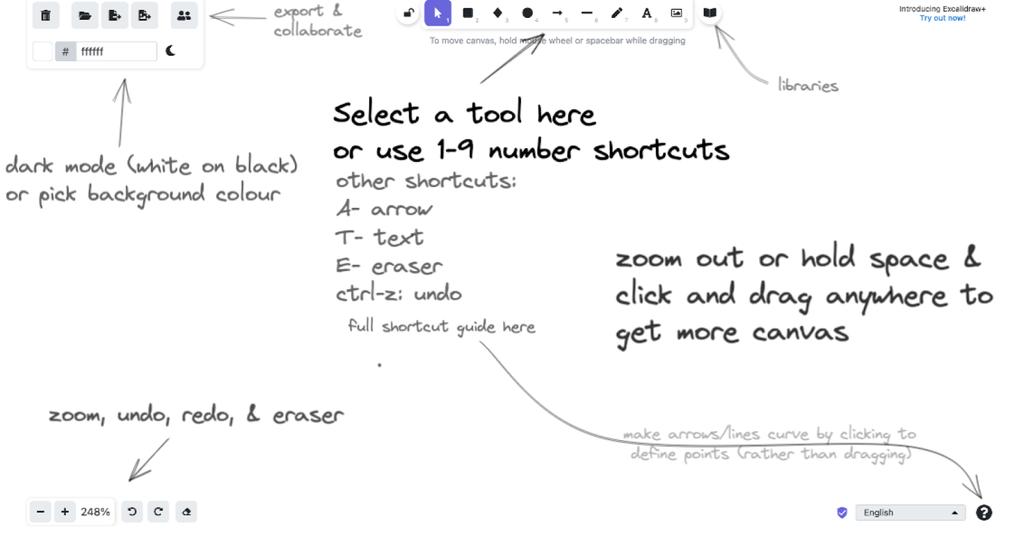 export &
collaborate
# ffffff
1 2 3 4 5 6 7 8 9
To move canvas, hold mouse wheel or spacebar while dragging
Introducing Excalidraw+
Try out now!
libraries
Select a tool here
or use 1-9 number shortcuts
dark mode (white on black)
or pick background colour
other shortcuts:
A- arrow
T- text
E- eraser
ctrl-z: undo
full shortcut guide here
zoom out or hold space &
click and drag anywhere to
get more canvas
zoom, undo, redo, & eraser
make arrows/lines curve by clicking to
define points (rather than dragging)
248%
English
?